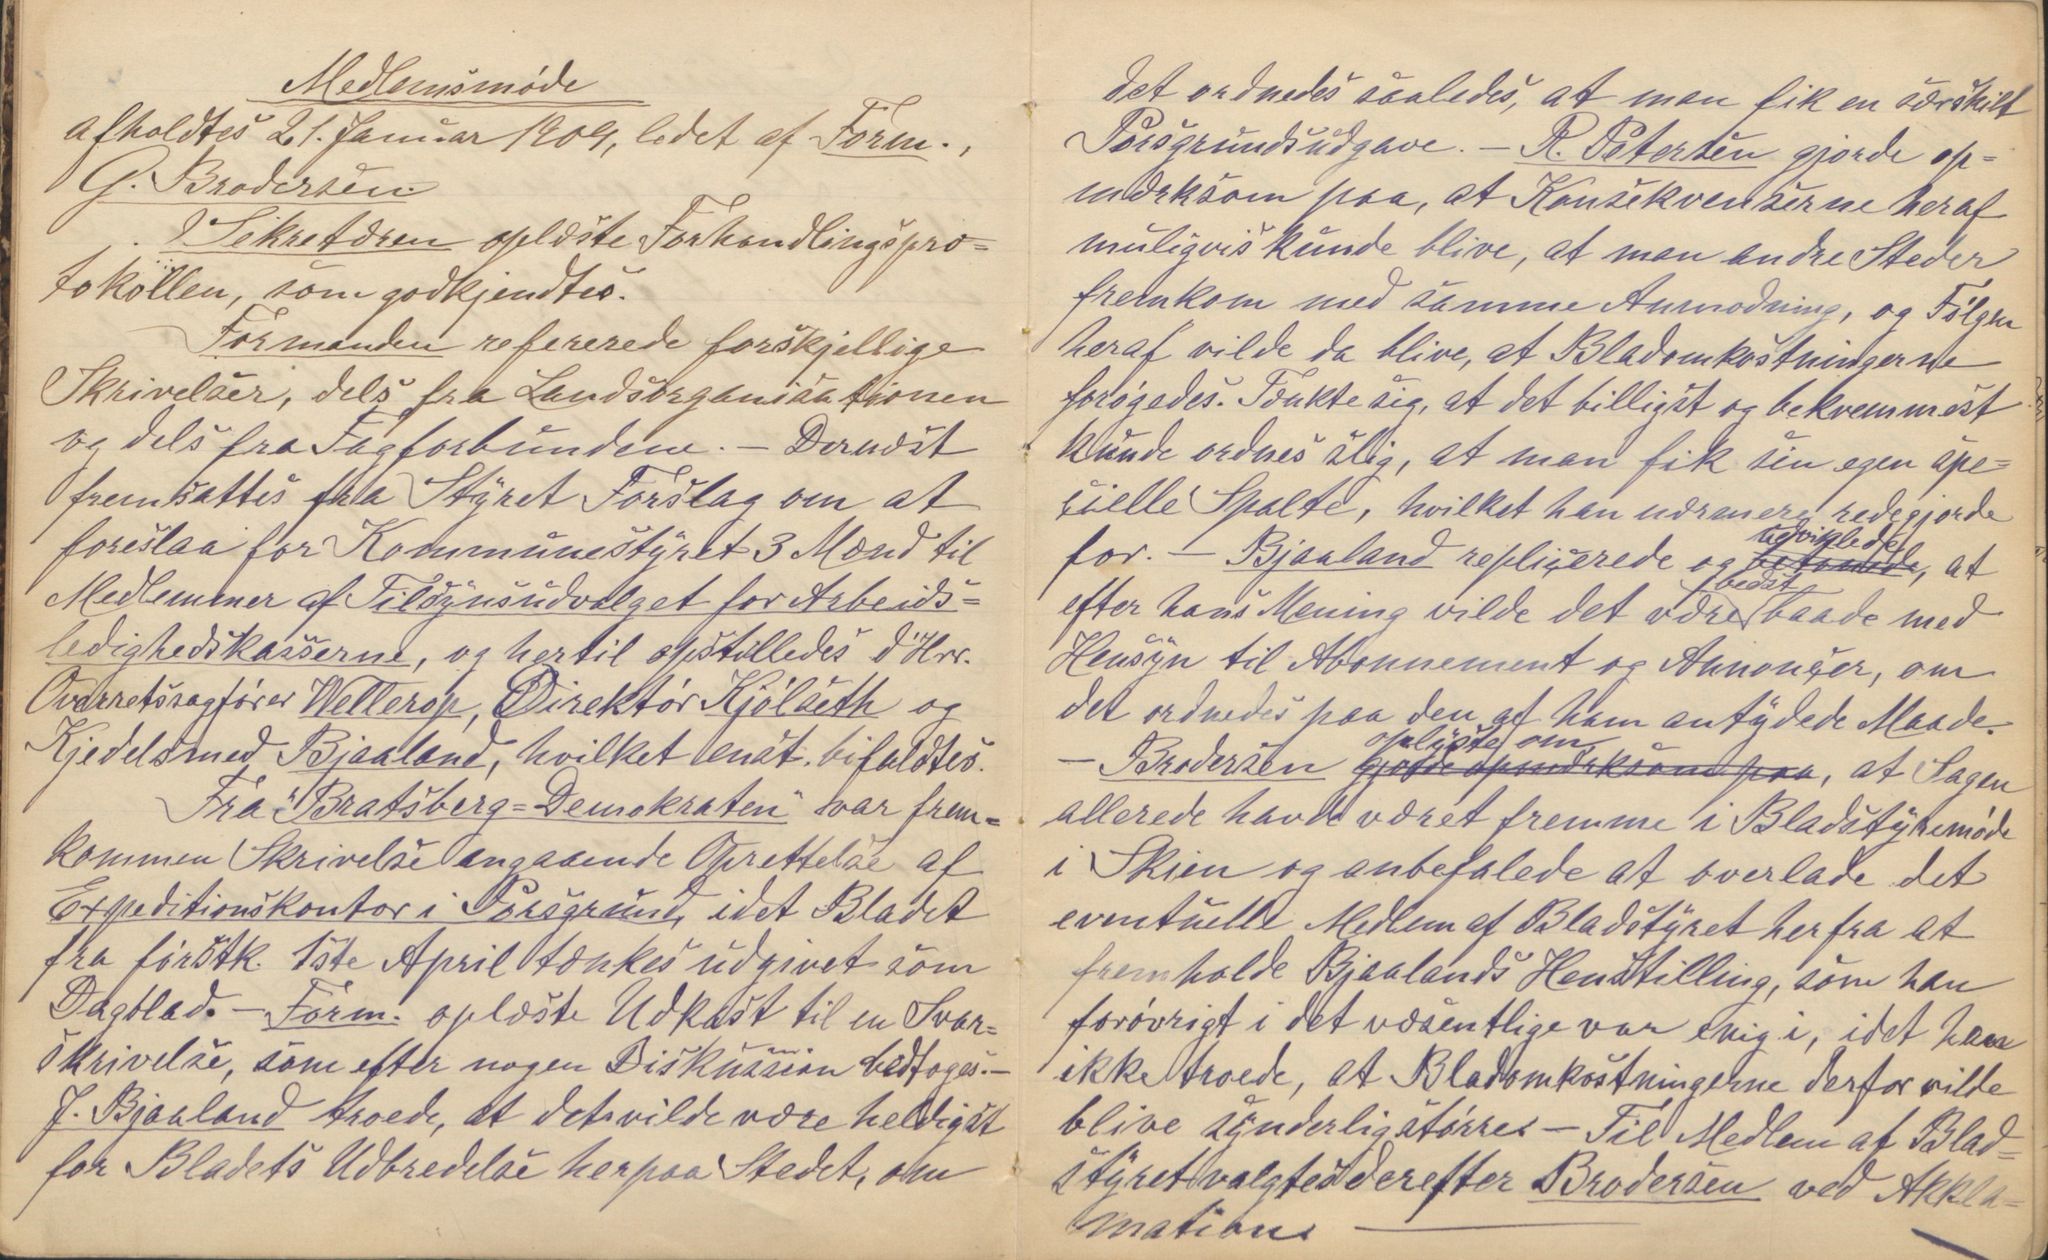 Medlemsmøde
afholdtes 21. Januar 1909, ledet af Form.,
G. Brodersen.
Sekretæren oplæste Forhandlingspro=
tokollen, som godkjendtes.
Formanden refererede forskjellige
Skrivelser, dels fra Landsorganisationen
og dels fra Fagforbundene. — Dernæst
fremsattes fra Styret Forslag om at
foreslaa for Kommunestyret 3 Mænd til
Medlemmer af Tilsynsudvalget for Arbeids=
ledighedskasserne, og hertil opstilledes d'Hrr.
Overretssagfører Wellerop, Direktør Kjølseth og
Kjedelsmed Bjaaland, hvilket enst. bifaldtes.
Fra "Bratsberg=Demokraten" var frem=
kommen Skrivelse angaaende Oprettelse af
Expeditionskontor i Porsgrund, idet Bladet
fra førstk. 1ste April tænkes udgivet som
Dagblad. — Form. oplæste Udkast til en Svar=
skrivelse, som efter nogen Diskussion vedtoges. —
J. Bjaaland troede, at det vilde være heldigst
for Bladets Udbredelse herpaa Stedet, om
det ordnedes saaledes, at man fik en særskilt
Porsgrundsudgave. — R. Petersen gjorde op=
mærksom paa, at Konsekvenserne heraf
muligvis kunde blive, at man andre Steder
fremkom med samme Anmodning, og Følgen
heraf vilde da blive, at Bladomkostningerne
forøgedes. Tænkte sig, at det billigst og bekvemmest
kunde ordnes slig, at man fik sin egen spe=
cielle Spalte, hvilket han nærmere redegjorde
for. — Bjaaland replicerede og betonede, at
udviklede
efter hans Mening vilde det være baade med
bedst
Hensyn til Abonnement og Annoncer, om
det ordnedes paa den af ham antydede Maade.
— Brodersen gjorde opmærksom paa, at Sagen
oplyste om
allerede havde været fremme i Bladstyremøde
i Skien og anbefalede at overlade det
eventuelle Medlem af Bladstyret herfra at
fremholde Bjaalands Henstilling, som han
forøvrigt i det væsentlige var enig i, idet han
ikke troede, at Bladomkostningerne derfor vilde
blive synderlig større. — Til Medlem af Blad=
styret valgtes derefter Brodersen ved Akkla=
mation.